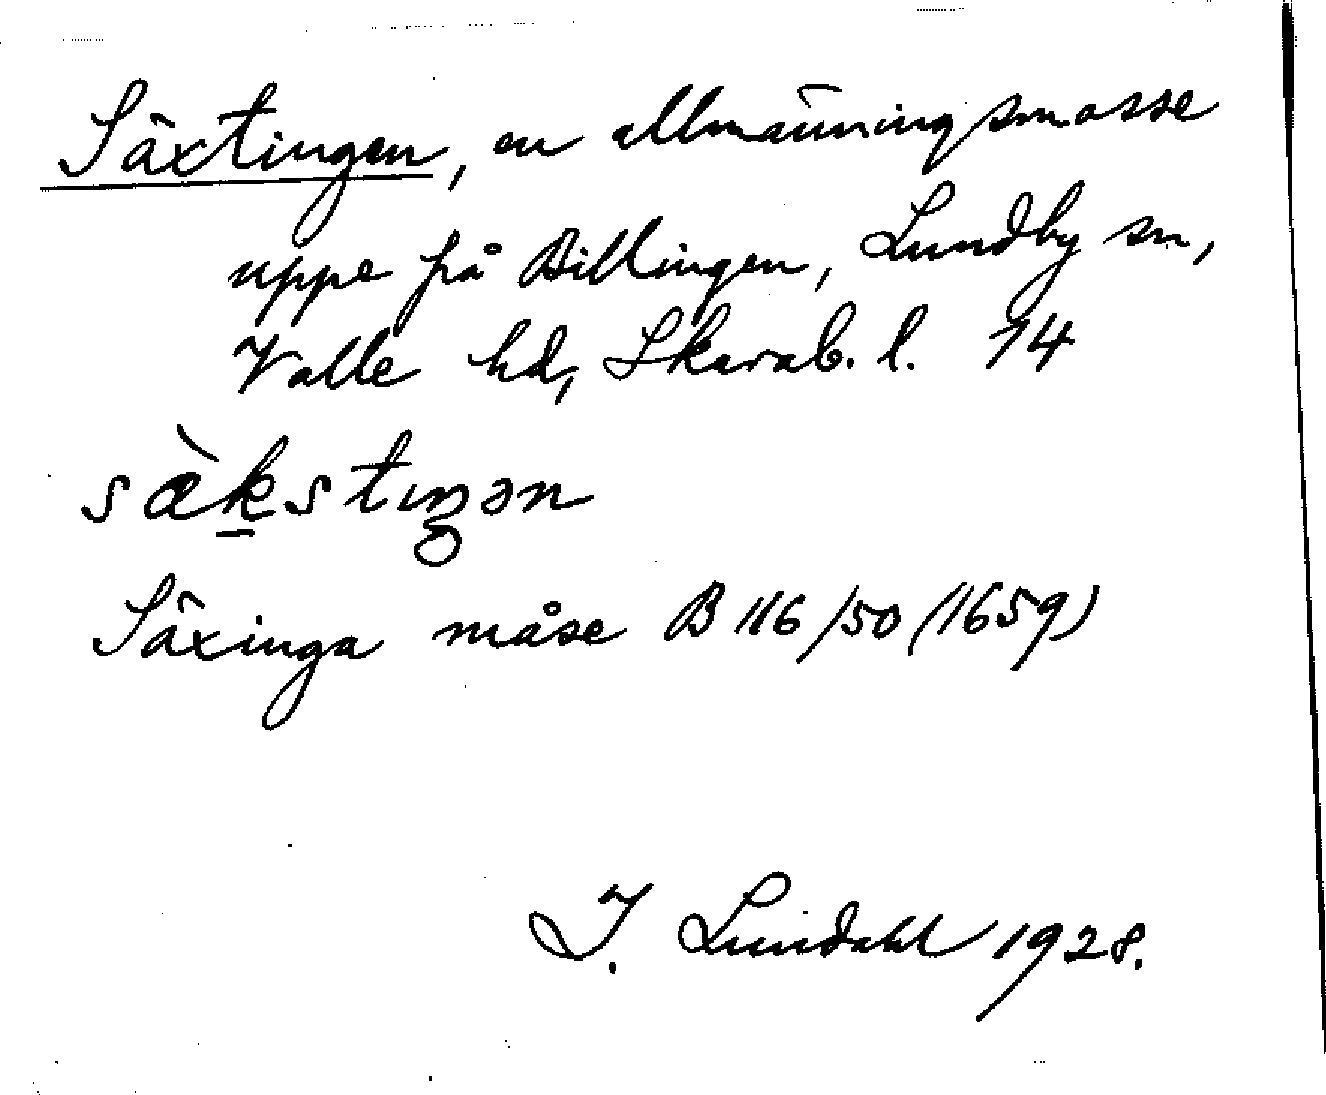 Säxtingen, en allmänningsmosse
uppe på Billingen, Lundby sn,
Valle hd, Skarab. l. 14
sæ̀k̠stıŋən
Säxinga måse B 116/50 (1659)
I. Lundahl 1928.